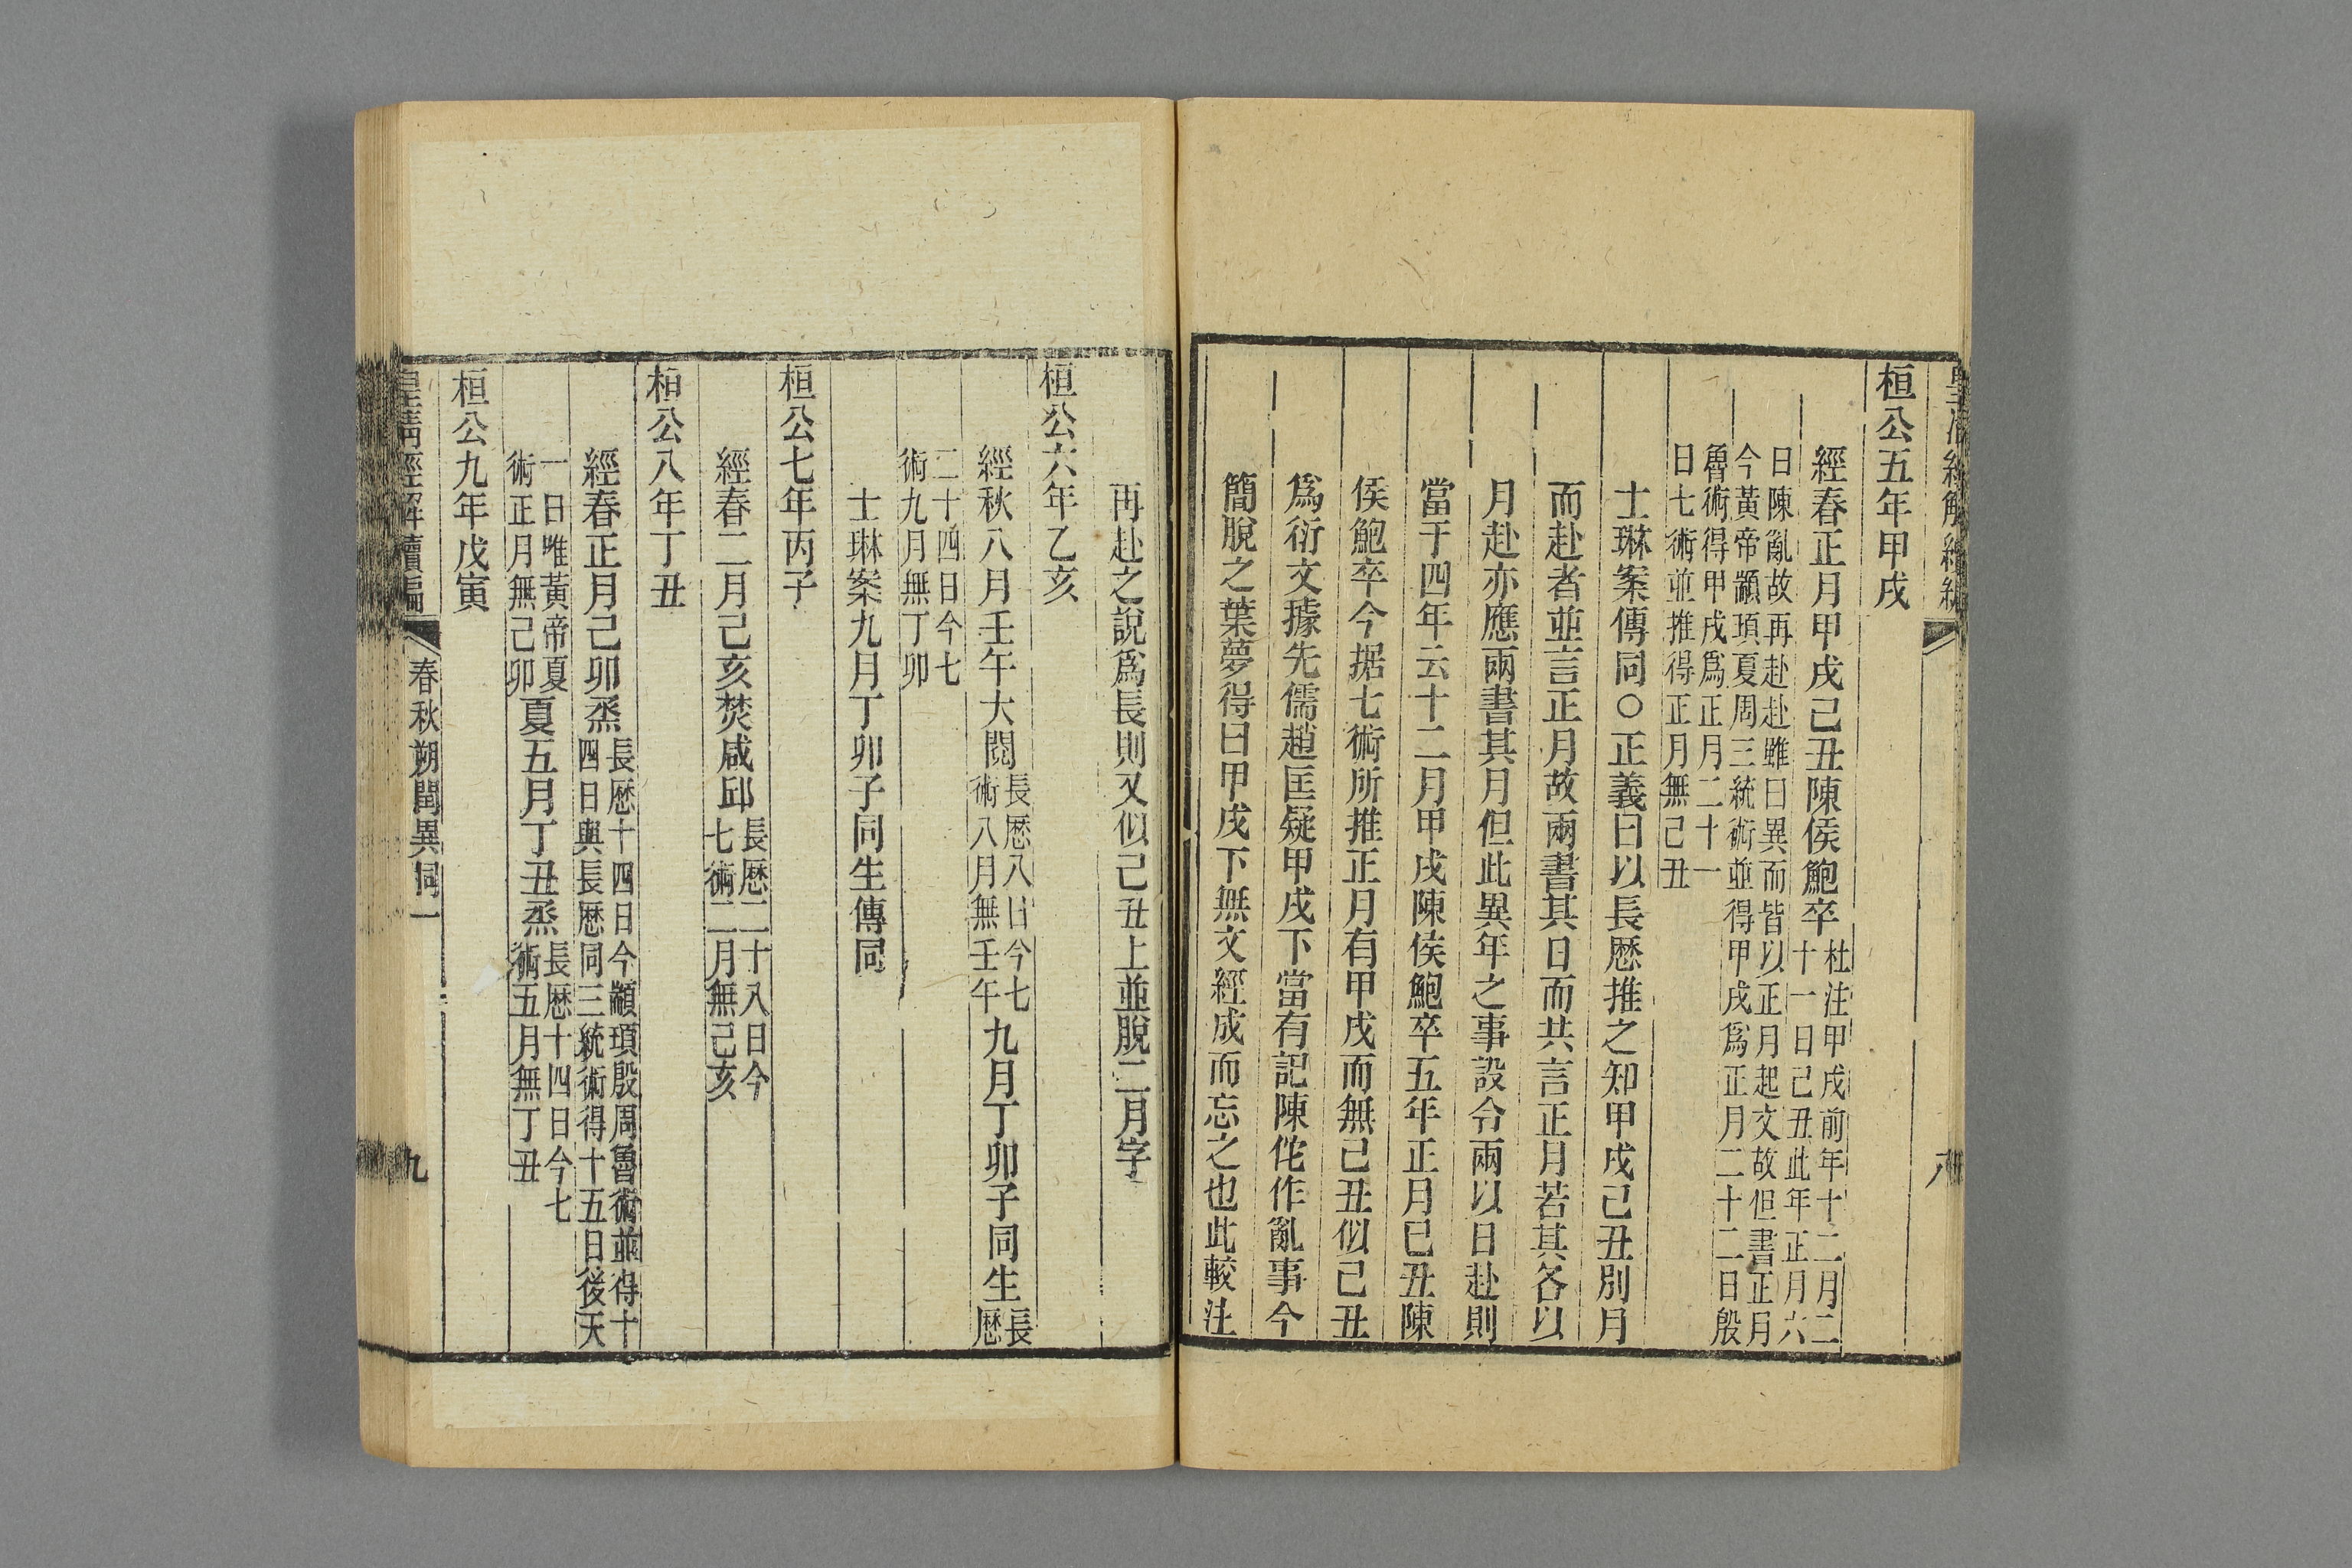 桓公五年甲戌
經春正月甲戌己丑陳侯鮑卒杜注甲戌前年十二月二
十一日己丑此年正月六
日陳亂故再赴赴雖日異而皆以正月起文故但書正月
今黃帝顓頊夏周三統術並得甲戌爲正月二十二日殷
魯術得甲戌爲正月二十一
日七術並推得正月無己丑
士琳案傳同○正義曰以長厯推之知甲戌己丑別月
而赴者並言正月故兩書其日而共言正月若其各以
月赴亦應兩書其月但此異年之事設令兩以日赴則
當于四年云十二月甲戌陳侯鮑卒五年正月己丑陳
侯鮑卒今据七術所推正月有甲戌而無己丑似己丑
爲衍文據先儒趙匡疑甲戌下當有記陳佗作亂事今
簡脫之葉夢得曰甲戌下無文經成而忘之也此較注
再赴之說爲長則又似己丑上並脫二月字
桓公六年乙亥
經秋八月壬午大閱長厯八日今七
術八月無壬午九月丁卯子同生長
厯
二十四日今七
術九月無丁卯
士琳案九月丁卯子同生傳同
桓公七年丙子
經春二月己亥焚咸邱長厯二十八日今
七術二月無己亥
桓公八年丁丑
經春正月己卯烝長厯十四日今顓頊殷周魯術並得十
四日與長厯同三統術得十五日後天
一日唯黃帝夏
術正月無己卯夏五月丁丑烝長厯十四日今七
術五月無丁丑
桓公九年戊寅
皇淸經解續編 春秋朔閏異同一 九